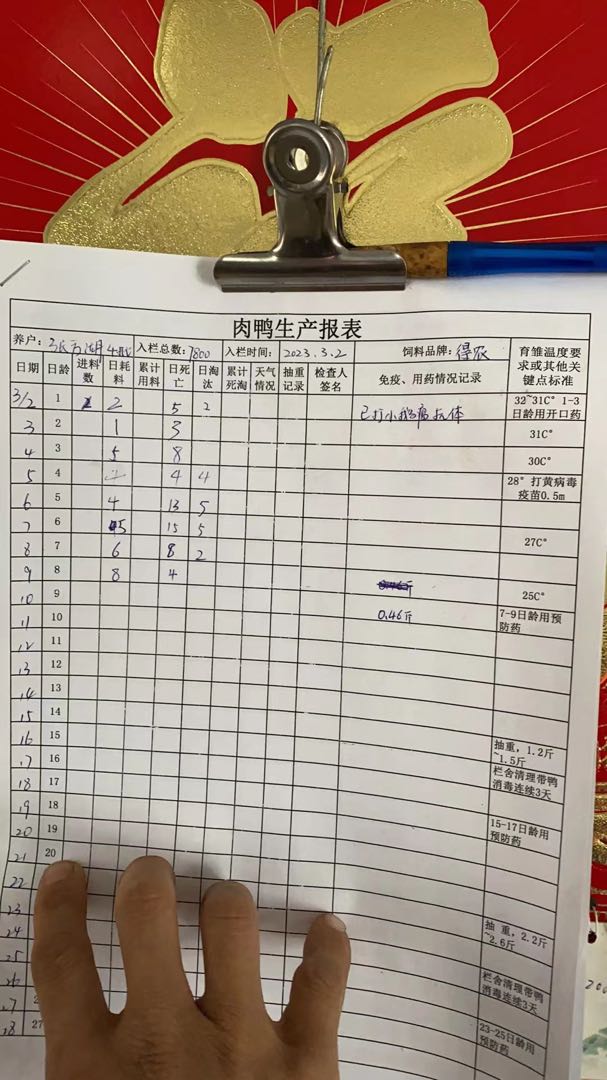 肉鸭生产报表
养户: 入栏总数: 7800 入栏时间: 2023.3.2 饲料品牌: 得农 育雏温度要求或其他关键点标准
日期 日龄 进料数 日耗料 累计用料 日死亡 日淘汰 累计死淘 天气情况 抽重记录 检查人签名 免疫、用药情况记录
3/2 1 2 5 2 已打小鹅瘟抗体 32~31C° 1-3日龄用开口药
3 2 1 3 31C°
4 3 5 8 30C°
5 4 4 4 28° 打黄病毒疫苗0.5m
6 5 4 13 5
7 6 5 15 5 27C°
8 7 6 8 2
9 8 8 4 25C°
10 9
11 10 0.46斤 7-9日龄用预防药
12 11
13 12
14 13
15 14
16 15 抽重,1.2斤~1.5斤
17 16 栏舍清理带鸭消毒连续3天
18 17
19 18 15-17日龄用预防药
20 19
21 20
22
23 抽 重,2.2斤~2.6斤
24
25 栏舍清理带鸭消毒连续3天
26
27 23-25日龄用预防药
28 27